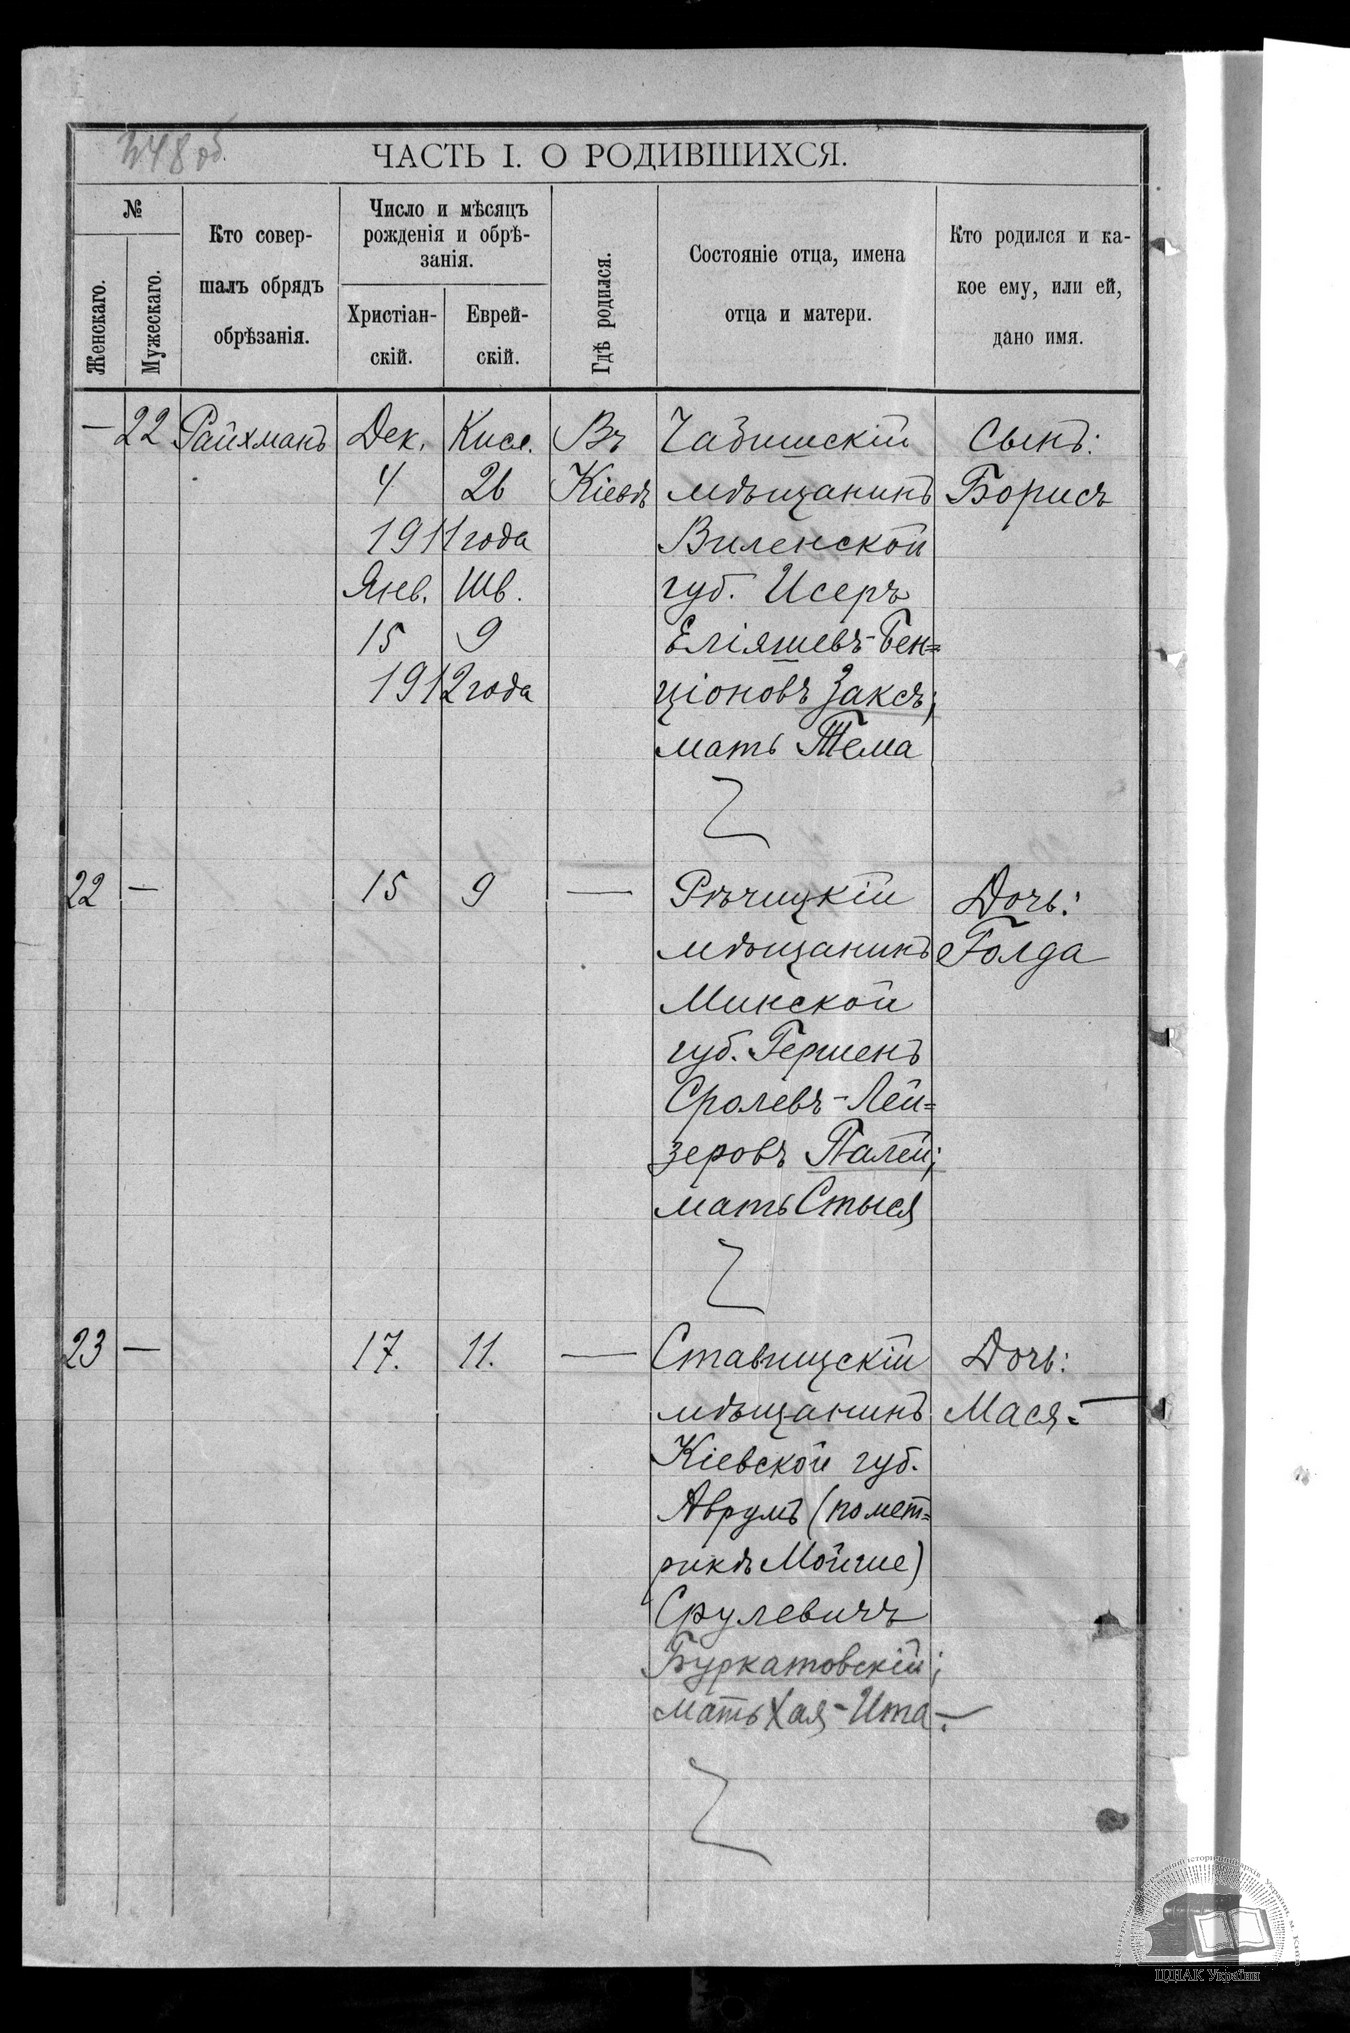 248 об.
ЧАСТЬ I. О РОДИВШИХСЯ.
№
Женскаго.
Мужескаго.
Кто совер-
шалъ обрядъ
обрѣзанія.
Число и мѣсяцъ
рожденія и обрѣ-
занія.
Христіан-
скій.
Еврей-
скій.
Гдѣ родился.
Состояніе отца, имена
отца и матери.
Кто родился и ка-
кое ему, или ей,
дано имя.
— 22 Райхманъ Дек. Кисл. Въ Чабишскій Сынъ:
4 26 Кіевѣ мѣщанинъ Борисъ
1911 года Виленской
Янв. Шв. губ. Исеръ
15 9 Еліяшевъ-Бен=
1912 года ціоновъ Заксъ;
мать Тема
22 — 15 9 — Рѣчицкій Дочь:
мѣщанинъ Голда
Минской
губ. Гершенъ
Сролевъ-Лей=
зеровъ Палей;
мать Стыся
23 — 17. 11. — Ставищскій Дочь:
мѣщанинъ Мася.
Кіевской губ.
Аврумъ (по мет=
рикѣ Мойше)
Срулевичъ
Буркатовскій;
мать Хая-Ита.
ЦДІАК України